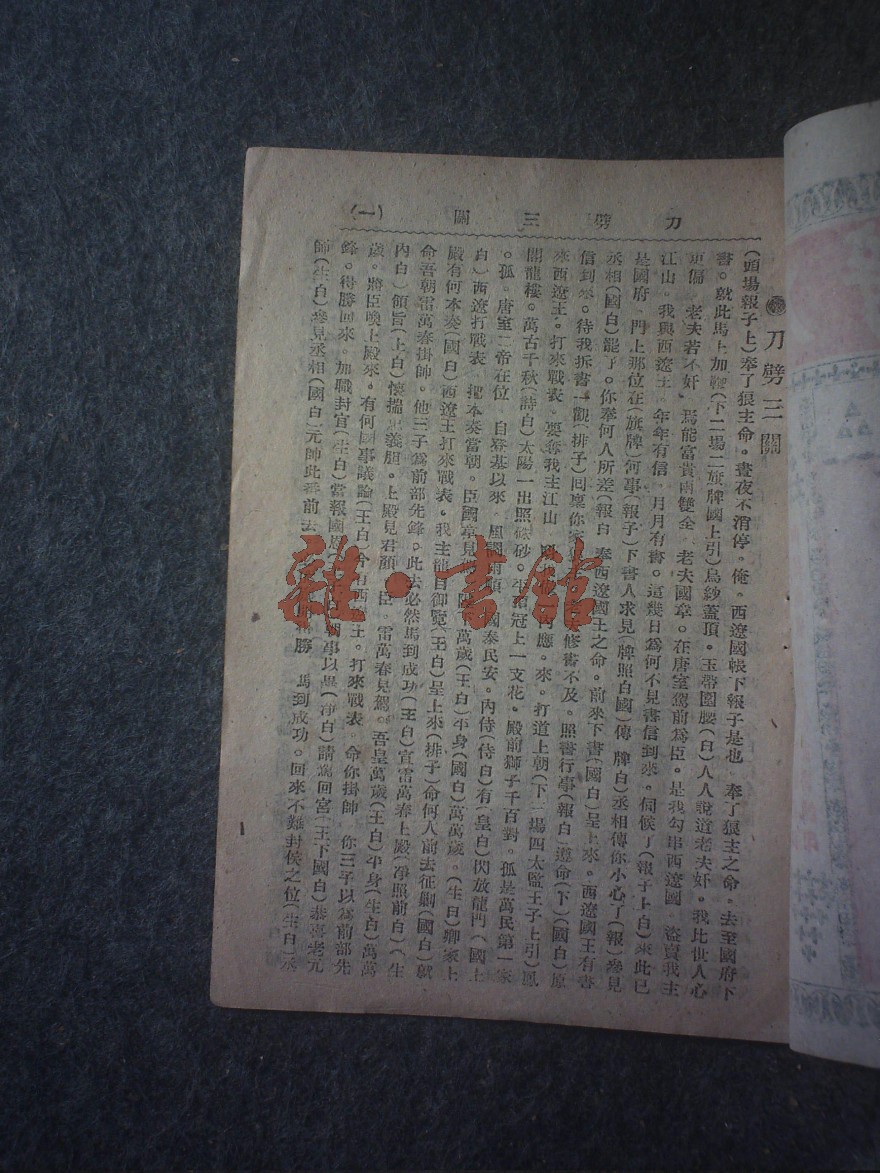 刀劈三關 (一)
刀劈三關
(頭場報子上)奉了狼主命。晝夜不消停。俺。西遼國帳下報子是也 奉了狼主之命。去至國府下
書。就此馬上加鞭(下二場二旗牌國上引)烏紗蓋頂。玉帶圍腰(白)人人說道老夫奸。我比世人心
更偏 老夫若不奸。焉能富貴兩雙全 老夫國章。在唐室駕前爲臣。是我勾串西遼國 盜賣我主
江山。我與西遼王。年年有信。月月有書。這幾日爲何不見書信到來。伺候了(報子上白)來此已
是國府。門上那位在(旗牌)何事(報子)下書人求見(牌照白國)傳 牌白)丞相傳你小心了(報)參見
丞相(國白)罷了。你奉何人所差(報白 奉西遼國王之命。前來下書(國白)呈上來。西遼國王有書
信到來。待我拆書一觀(排子)回稟你家 修書不及。照書行事(報白)遵命(下)(國白)原
來西遼王。打來戰表。要奪我主江山 應。來。打道上朝(下三場四太監王子上引)鳳
閣龍樓。萬古千秋(詩白)太陽一出照硃砂。 冠上一支花。殿前獅子千百對。孤是萬民第一家
。孤。唐室二帝在位 自登基以來。風調雨順。國泰民安。內侍(侍白)有(皇白)閃放龍門(國上
白)西遼打戰表。把本奏當朝。臣國章見 萬歲(王白)平身(國白)萬萬歲。(王白)卿家上
殿有何本奏(國白)西遼王打來戰表。我主龍目御覽(王白)呈上來(排子)命何人前去征剿(國白)就
命吾朝雷萬春掛帥。他三子爲前部先鋒。此去必然馬到成功(王白)宣雷萬春上殿(淨照前白)(生
內白)領旨(上白)懷揣忠義胆。上殿見君顏 臣。雷萬春見駕。吾皇萬歲(王白)平身(生白)萬萬
歲。將臣喚上殿來。有何國事議論(王白)今有西遼王。打來戰表。命你掛帥 你三子以爲前部先
鋒。得勝回來。加職封官(生白)當報國恩 國事以畢(淨白)請駕回宮(王下國白)恭喜老元
帥(生白)參見丞相(國白)元帥此番前去 得勝 馬到成功。回來不難封侯之位(生白)承
雜·書館